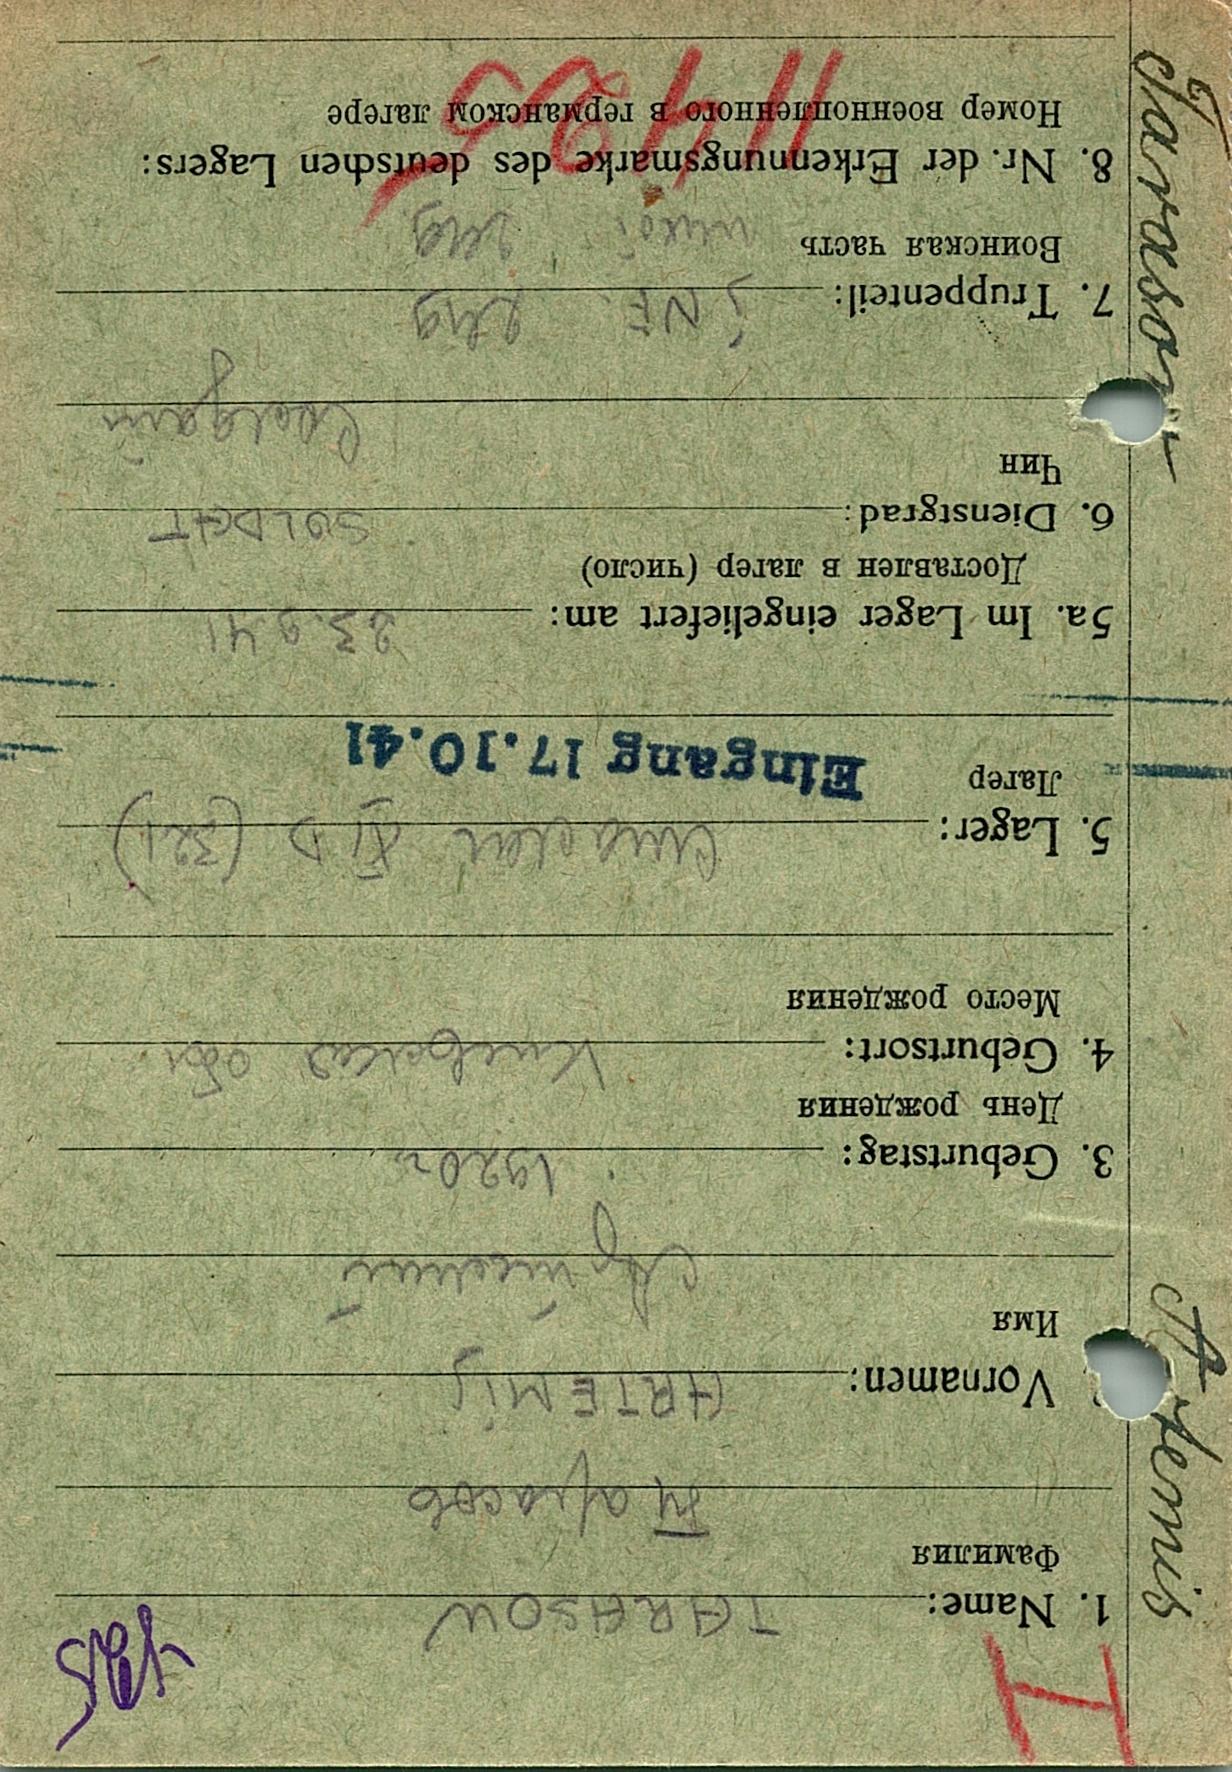 425
H
1. Name: TARASOW
Фамилия Тарасов
Vornamen: ARTEMIJ
Имя Артемий
3. Geburtstag: 1920г
День рождения
4. Geburtsort: Киевская обл
Место рождения
5. Lager: Сталаг XI D (321)
Лагер Eingang 17.10.41
5a. Im Lager eingeliefert am: 23.9.41
Доставлен в лагер (число)
6. Dienstgrad: SOLDAT
Чин Солдат
7. Truppenteil: INF.
Воинская часть
8. Nr. der Erkennungsmarke des deutschen Lagers:
Номер военнопленного в германском лагере
11425
Tarasow
Artemis